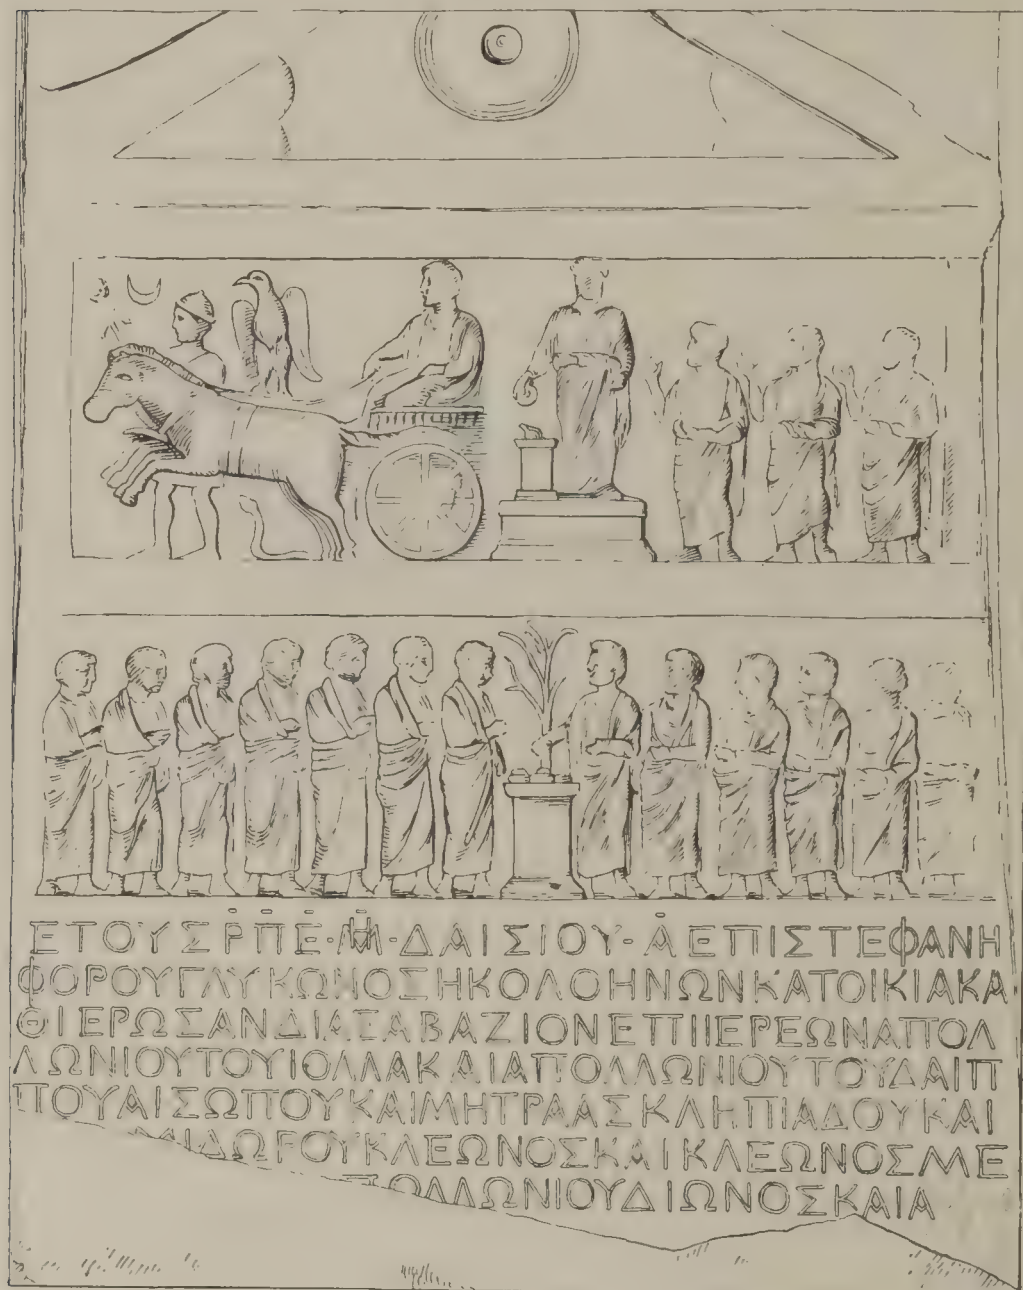 ΕΤΟΥΣ ΡΠΕ · ΜΗ · ΔΑΙΣΙΟΥ · Α ΕΠΙ ΣΤΕΦΑΝΗ
ΦΟΡΟΥ ΓΛΥΚΩΝΟΣ Η ΚΟΛΟΗΝΩΝ ΚΑΤΟΙΚΙΑ ΚΑ
ΘΙΕΡΩΣΑΝ ΔΙΑ ΣΑΒΑΖΙΟΝ ΕΠΙ ΙΕΡΕΩΝ ΑΠΟΛ
ΛΩΝΙΟΥ ΤΟΥ ΙΟΛΛΑ ΚΑΙ ΑΠΟΛΛΩΝΙΟΥ ΤΟΥ ΔΑΙΠ
ΠΟΥ ΑΙΣΩΠΟΥ ΚΑΙ ΜΗΤΡΑ ΑΣΚΛΗΠΙΑΔΟΥ ΚΑΙ
ΜΙΔΩΡΟΥ ΚΛΕΩΝΟΣ ΚΑΙ ΚΛΕΩΝΟΣ ΜΕ
ΠΟΛΛΩΝΙΟΥ ΔΙΩΝΟΣ ΚΑΙ Α